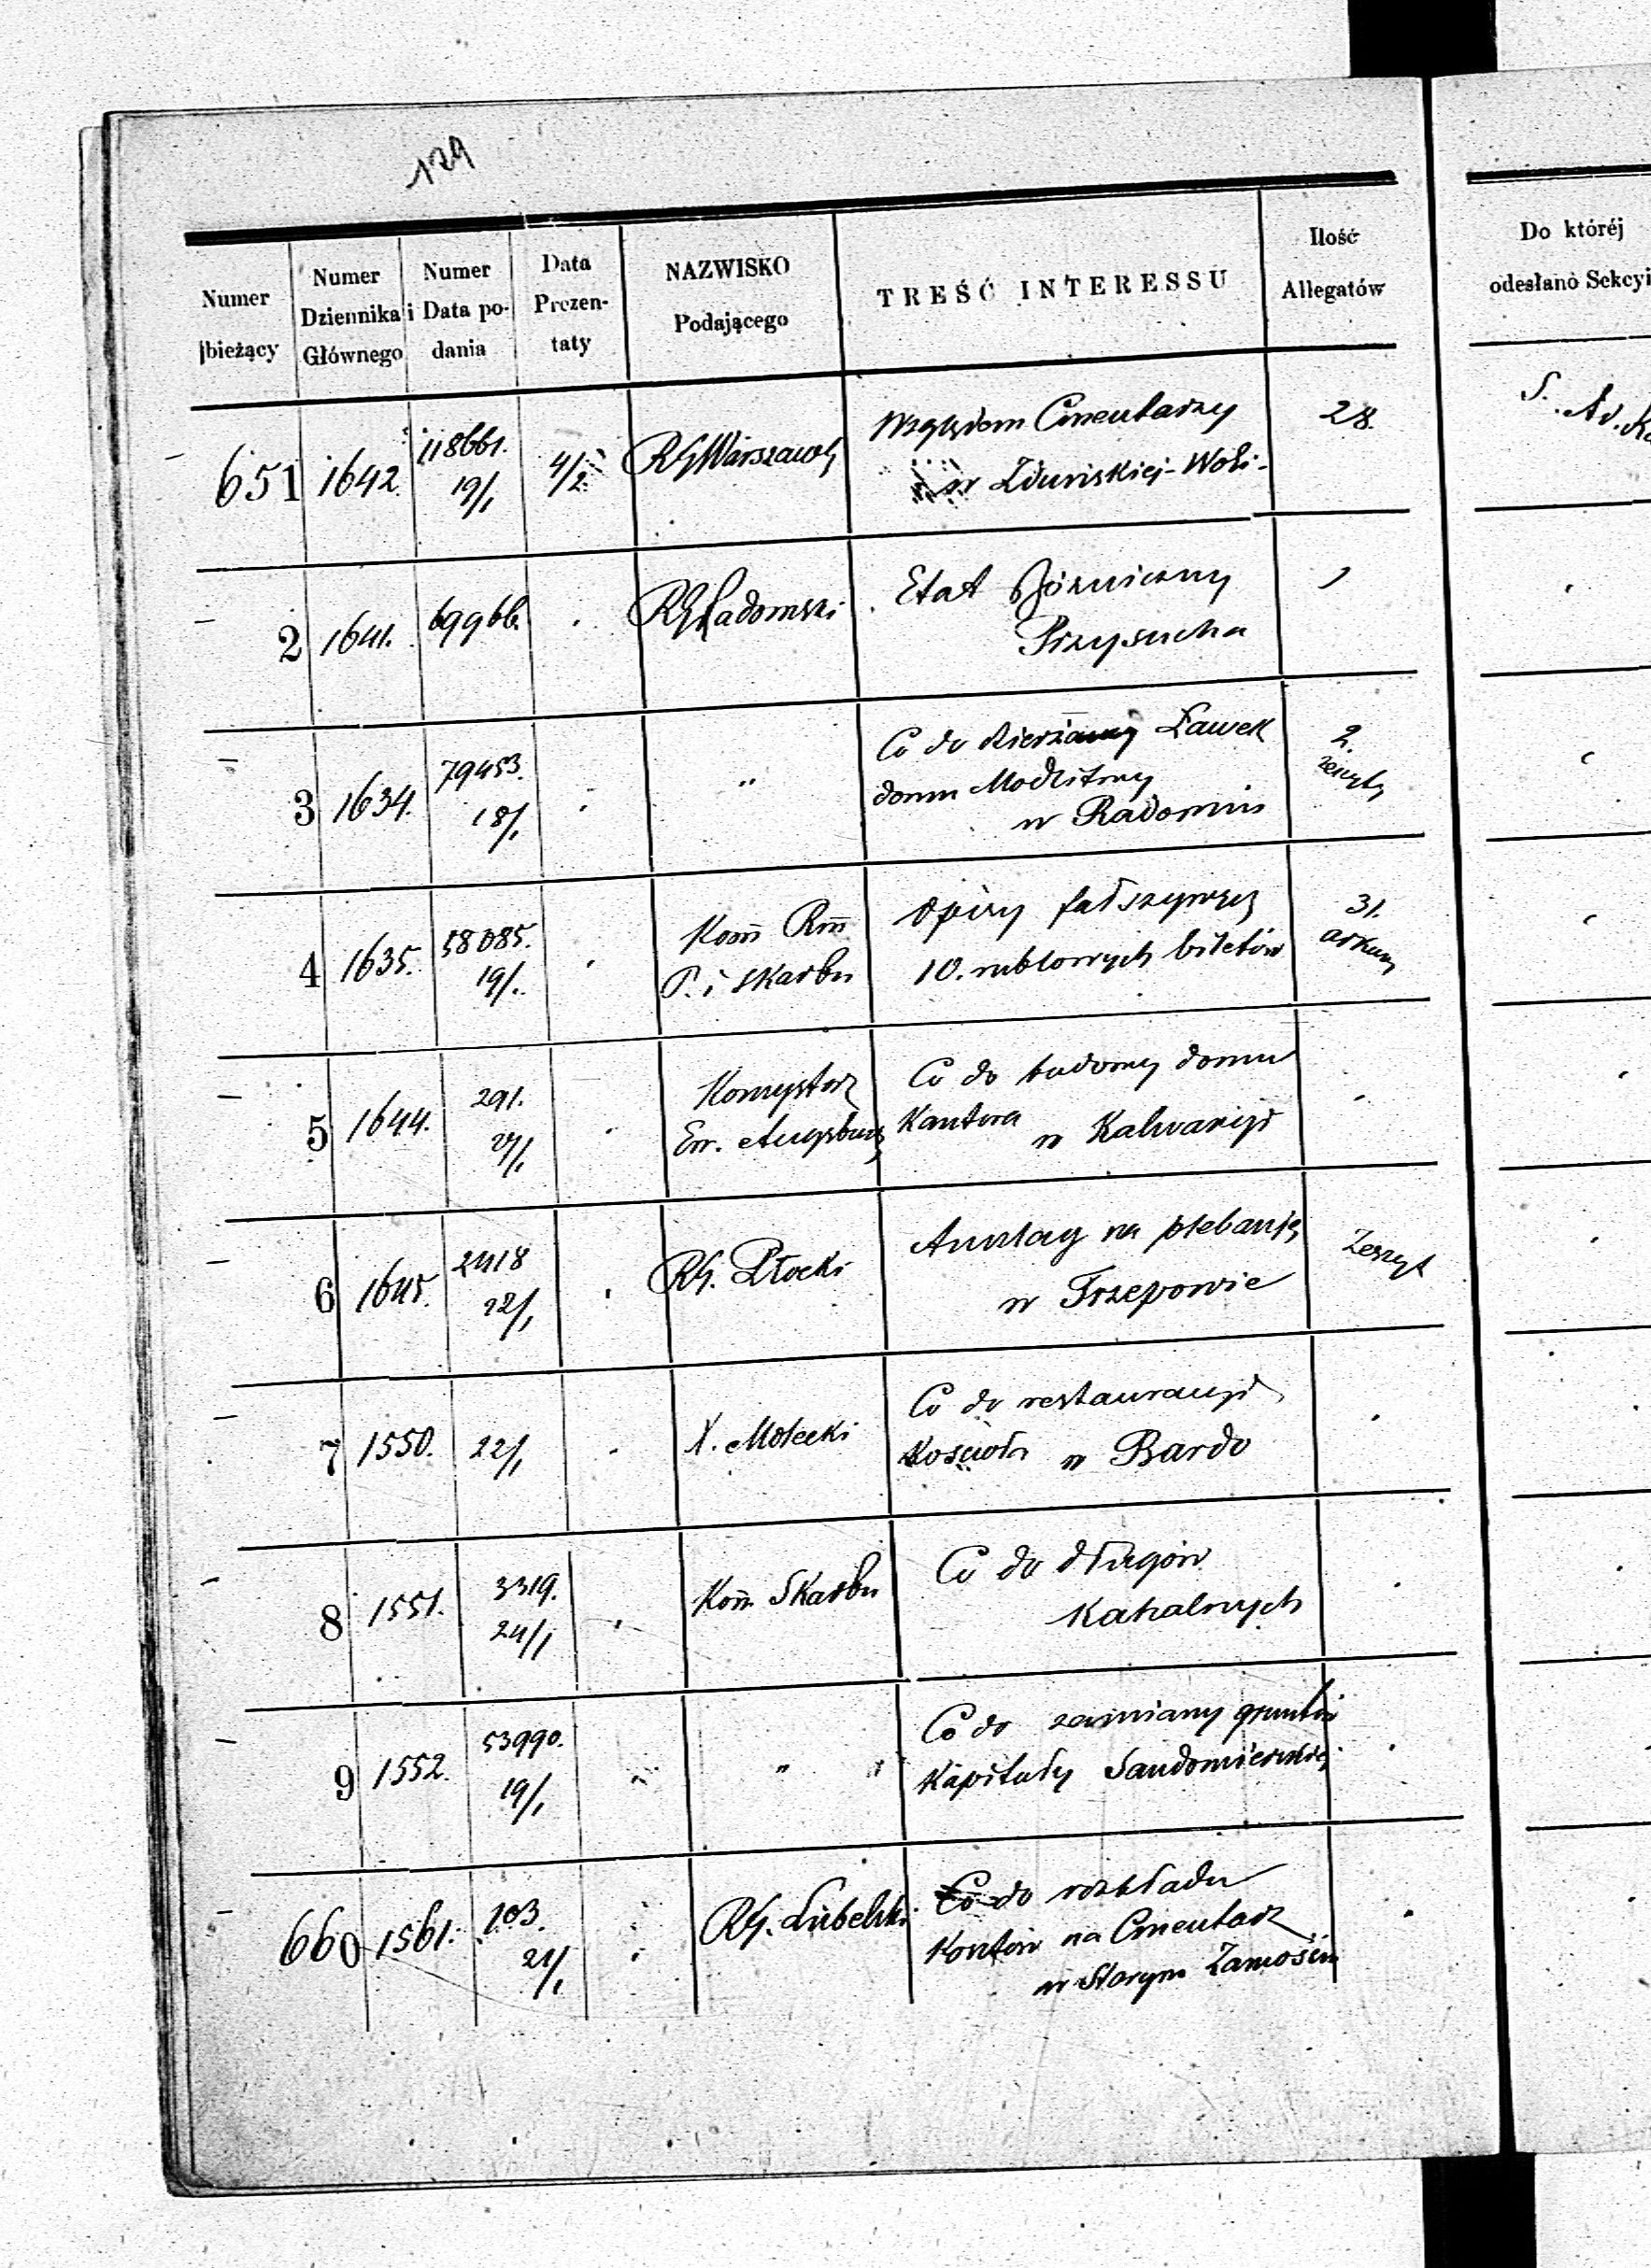 129
Numer
bieżący
Numer
Dziennika
Głównego
Numer
i Data po-
dania
Data
Prezen-
taty
NAZWISKO
Podającego
TREŚĆ INTERESSU
Ilość
Allegatów
Do któréj
odesłano Sekcyi
651 1642. 11866. 19/1 4/2 RG Warszaws
Względem Cmentarzy
w Zduńskiej-Woli-
28.
2 1641. 69966. RG Radomski
Etat Bóżniczny
Przysucha
1
3 1634. 79453. 18/1 "
Co do dzierżawy Ławek
domu Modlitwy
w Radomiu
2. zeszyty
4 1635. 58085. 19/1
Kom Rm
P. i Skarbu
Opisy fałszywych
10. rublowych biletów
31. arkuszy
5 1644. 291.
Konsystorz
Ew. Augsburg
Co do budowy domu
Kantora w Kalwaryi
6 1645. 2418 22/1 RG. Płocki
Anszlag na plebanię
w Trzepowie
Zeszyt
7 1550. 22/1 X. Molecki
Co do restauracyi
Kościoła w Bardo
8 1551. 3319. 24/1 Kom Skarbu
Co do długów
Kahalnych
9 1552. 53990. 19/1 "
Co do zamiany gruntów
Kapituły Sandomierskiej
660 1561. 103. 21/1 RG. Lubelski
Co do rozkładu
Kosztów na Cmentarz
w Starym Zamościu